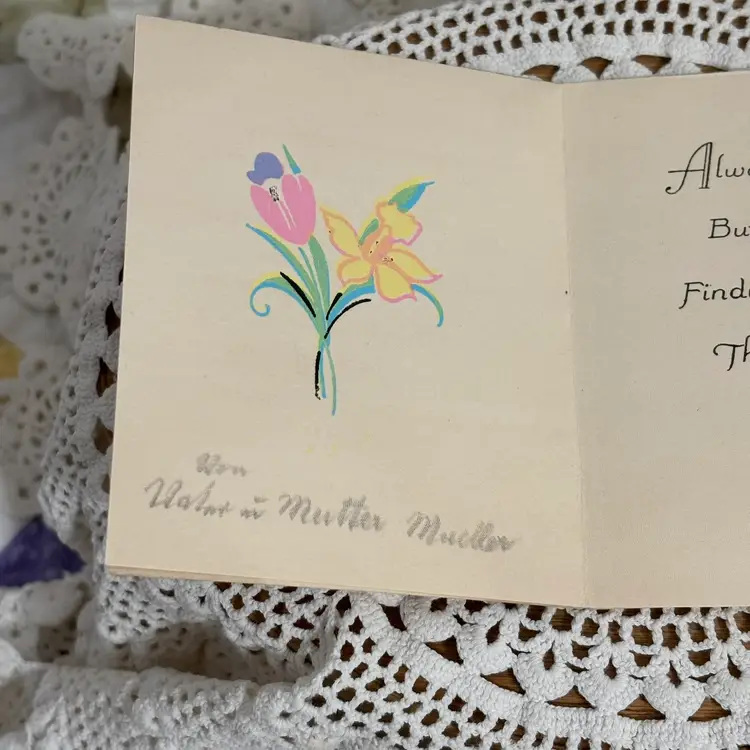 Von
Vater u Mutter Mueller
Alwa
But
Finds
Th